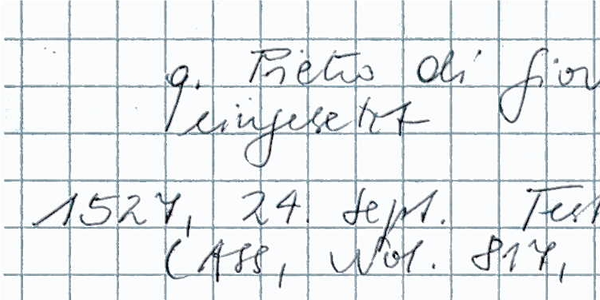 q. Pietro di Giov
eingesetzt
1527, 24. Sept. Test
(ASS, Not. 817,